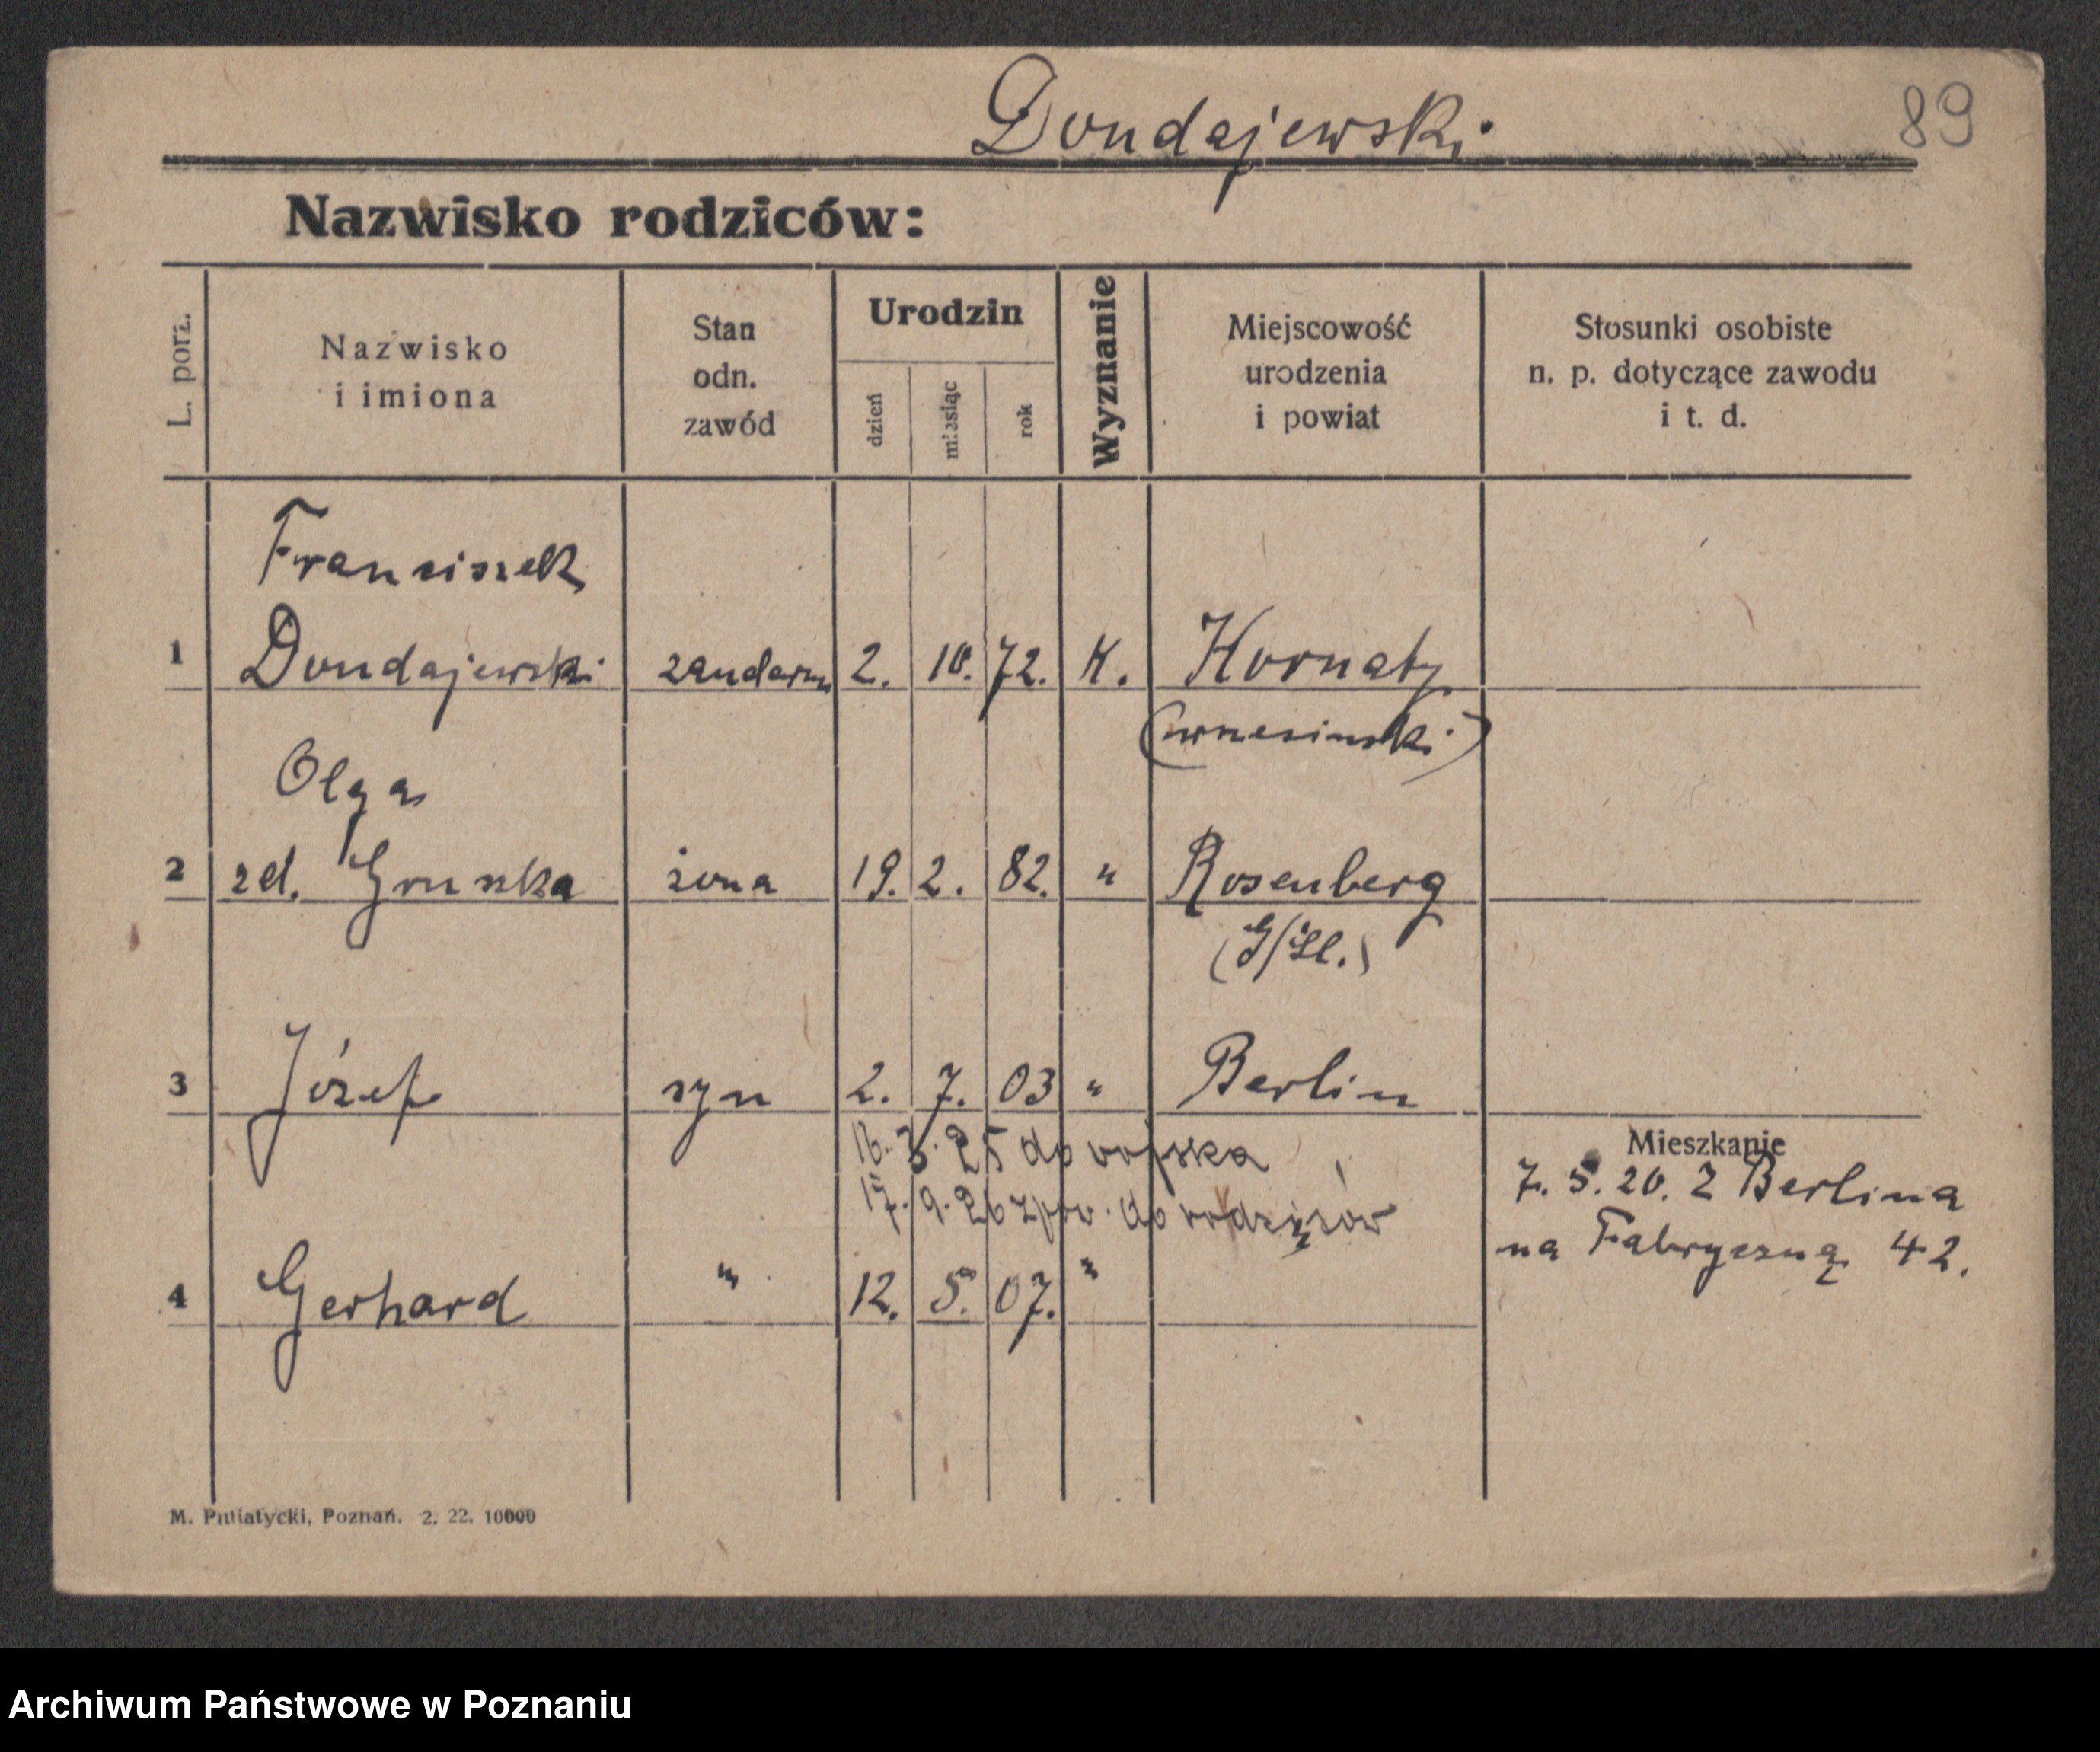 Dondajewski
89
Nazwisko rodziców:
L. porz.
Nazwisko
i imiona
Stan
odn.
zawód
Urodzin
dzień
miesiąc
rok
Wyznanie
Miejscowość
urodzenia
i powiat
Stosunki osobiste
n. p. dotyczące zawodu
i t. d.
Franciszek
1 Dondajewski żandarm 2. 10. 72. K. Kornaty
(wrzesiński)
Olga
2 zd. Gruszka żona 19. 2. 82. " Rosenberg
(G/Śl.)
3 Józef syn 2. 7. 03 " Berlin
16. 3. 25 do wojska
17. 9. 26 zpow. do rodziców
Mieszkanie
7. 5. 20. Z Berlina
na Fabryczną 42.
4 Gerhard " 12. 5. 07. "
M. Putiatycki, Poznań. 2. 22. 10000
Archiwum Państwowe w Poznaniu